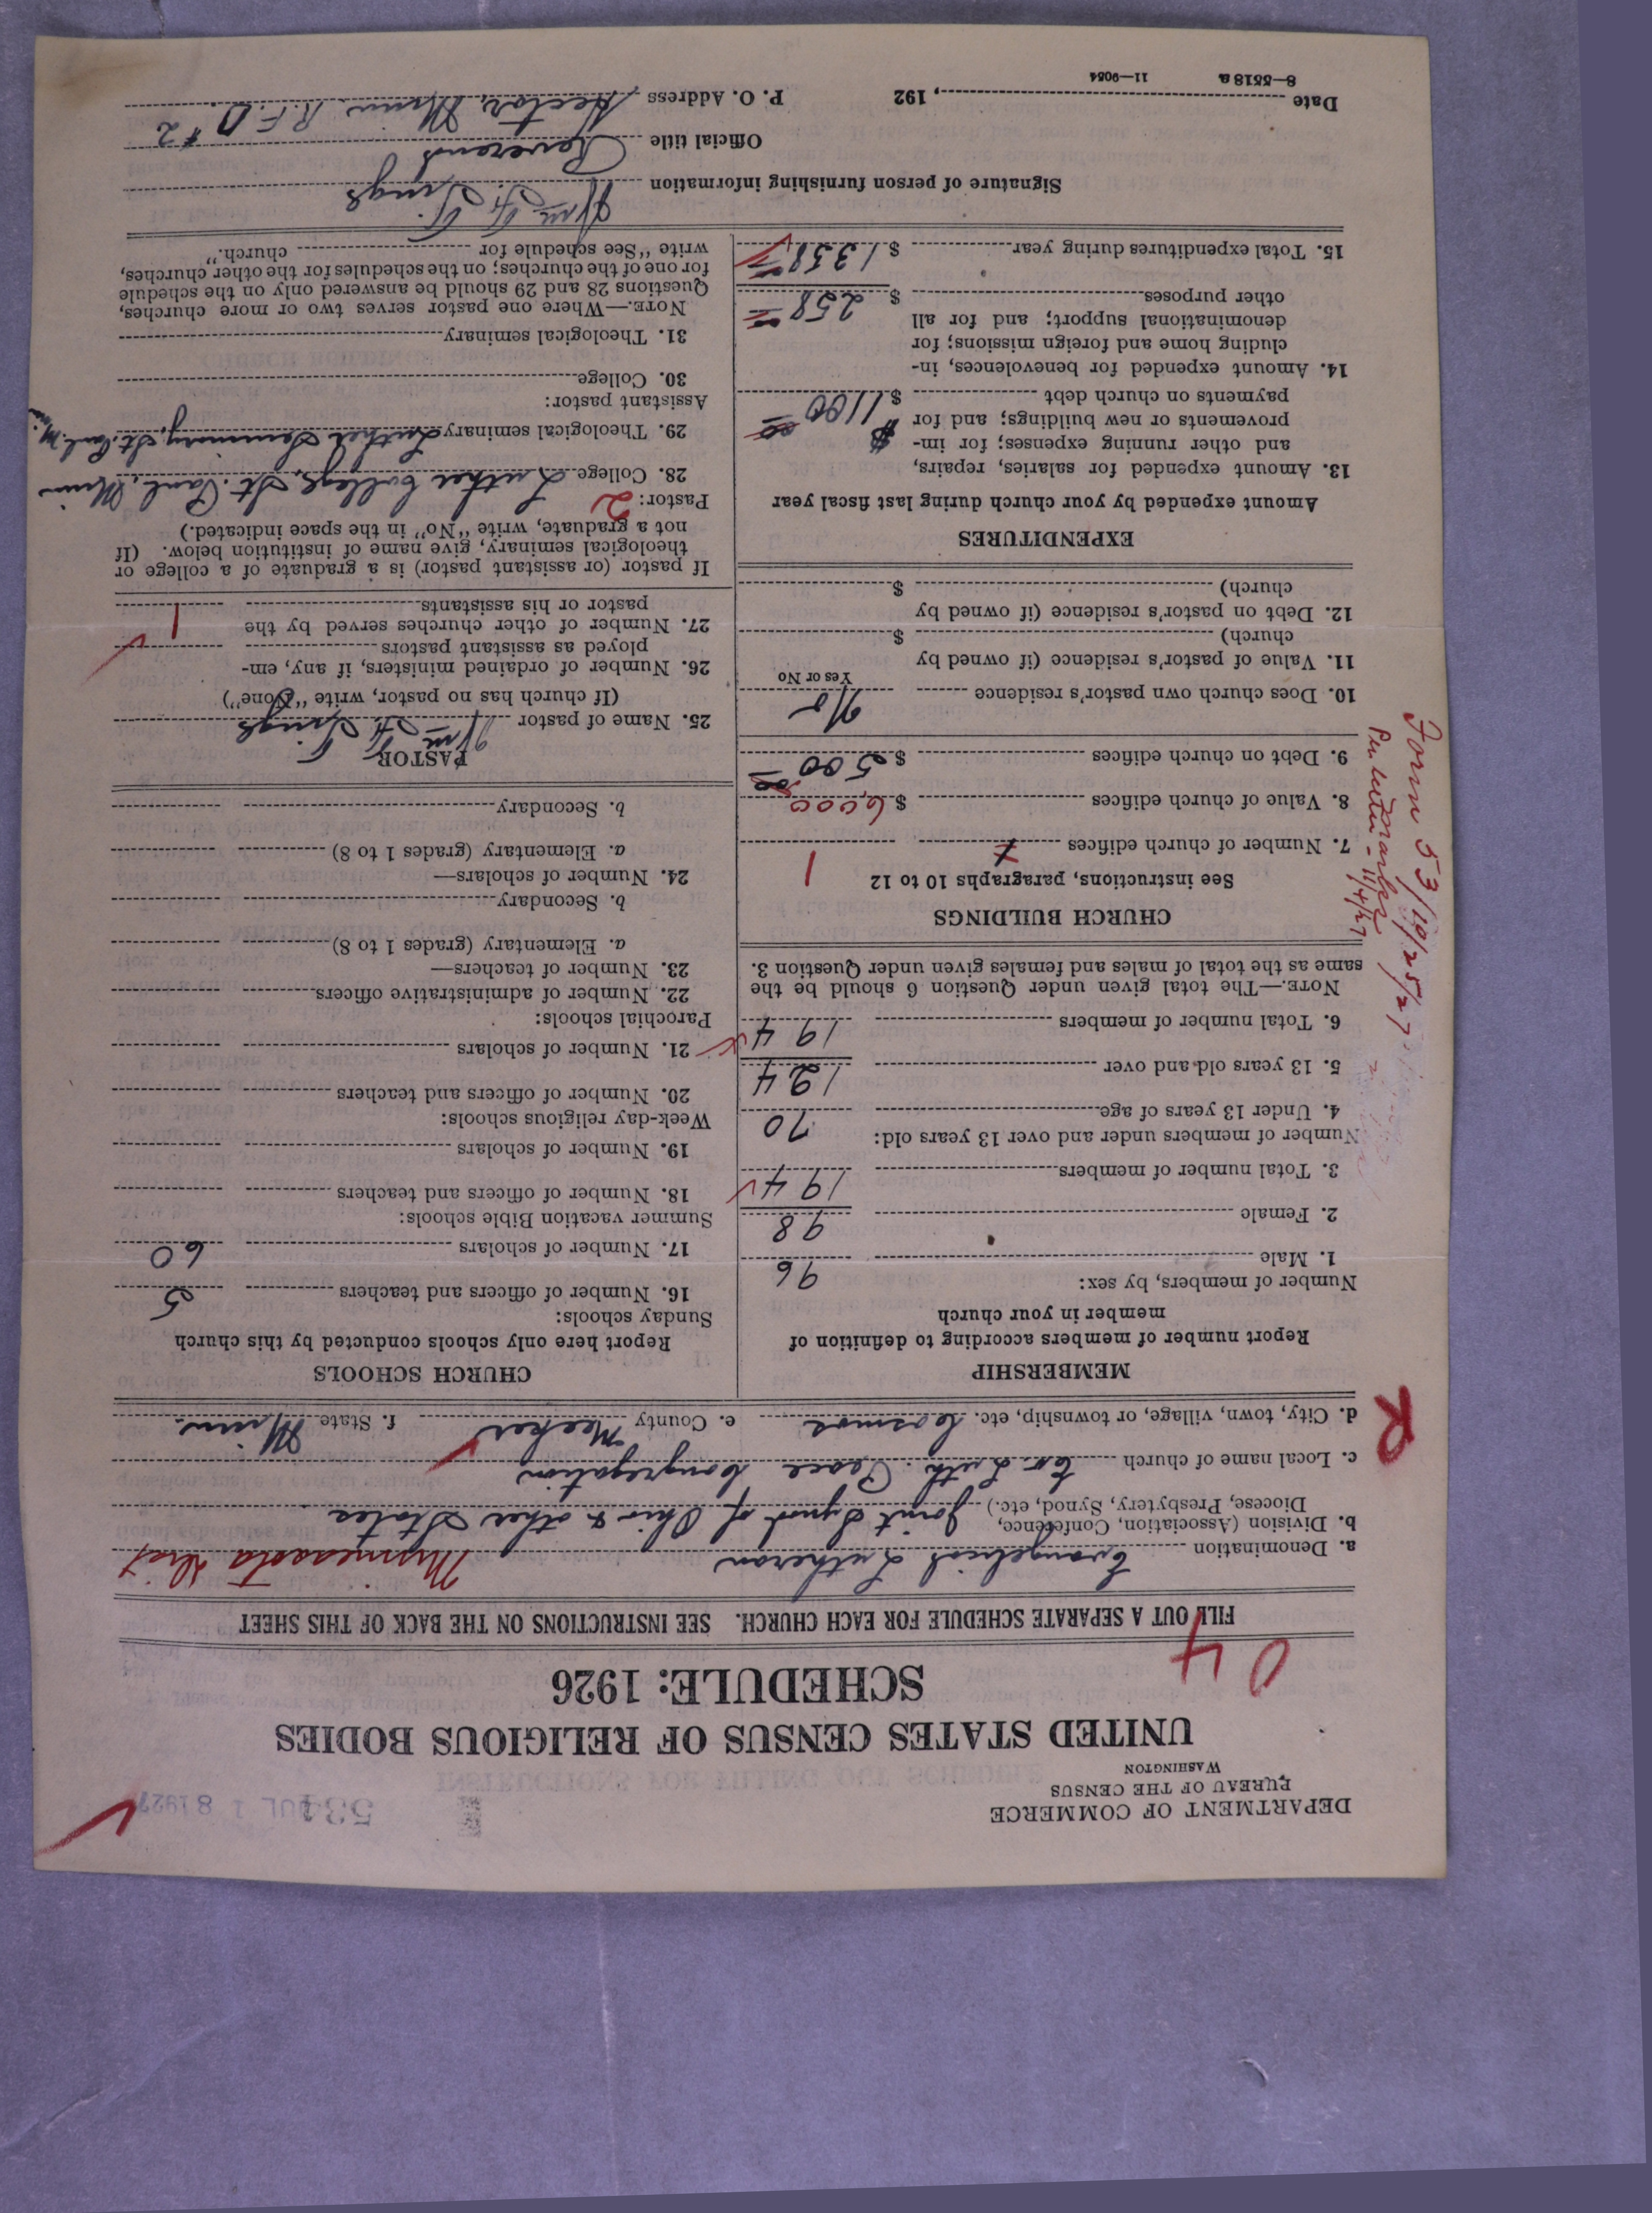 DEPARTMENT OF COMMERCE
BUREAU OF THE CENSUS
WASHINGTON
534 JUL 18 1927
UNITED STATES CENSUS OF RELIGIOUS BODIES
SCHEDULE: 1926
04
FILL OUT A SEPARATE SCHEDULE FOR EACH CHURCH. SEE INSTRUCTIONS ON THE BACK OF THIS SHEET
a. Denomination Evangelical Lutheran Minnesota Dist
b. Division (Association, Conference, Diocese, Presbytery, Synod, etc.) Joint Synod of Ohio & other States
c. Local name of church Ev. Luth. Peace Congregation
d. City, town, village, or township, etc. Cosmos e. County Meeker f. State Minn.
R
MEMBERSHIP
Report number of members according to definition of
member in your church
Number of members, by sex:
1. Male 96
2. Female 98
3. Total number of members 194
Number of members under and over 13 years old:
4. Under 13 years of age 70
5. 13 years old and over 124
6. Total number of members 194
NOTE.—The total given under Question 6 should be the
same as the total of males and females given under Question 3.
CHURCH BUILDINGS
See instructions, paragraphs 10 to 12
7. Number of church edifices 1
8. Value of church edifices $6,000
9. Debt on church edifices $500
10. Does church own pastor's residence No
Yes or No
11. Value of pastor's residence (if owned by
church) $
12. Debt on pastor's residence (if owned by
church) $
EXPENDITURES
Amount expended by your church during last fiscal year
13. Amount expended for salaries, repairs,
and other running expenses; for im-
provements or new buildings; and for
payments on church debt $1100
14. Amount expended for benevolences, in-
cluding home and foreign missions; for
denominational support; and for all
other purposes $258
15. Total expenditures during year $1358
CHURCH SCHOOLS
Report here only schools conducted by this church
Sunday schools:
16. Number of officers and teachers 5
17. Number of scholars 60
Summer vacation Bible schools:
18. Number of officers and teachers
19. Number of scholars
Week-day religious schools:
20. Number of officers and teachers
21. Number of scholars
Parochial schools:
22. Number of administrative officers
23. Number of teachers—
a. Elementary (grades 1 to 8)
b. Secondary
24. Number of scholars—
a. Elementary (grades 1 to 8)
b. Secondary
PASTOR
25. Name of pastor Wm. F.
(If church has no pastor, write "None")
26. Number of ordained ministers, if any, em-
ployed as assistant pastors
27. Number of other churches served by the
pastor or his assistants 1
If pastor (or assistant pastor) is a graduate of a college or
theological seminary, give name of institution below. (If
not a graduate, write "No" in the space indicated.)
Pastor: 2
28. College Luther College, St. Paul, Minn
29. Theological seminary Luther Seminary, St. Paul, M.
Assistant pastor:
30. College
31. Theological seminary
NOTE.—Where one pastor serves two or more churches,
Questions 28 and 29 should be answered only on the schedule
for one of the churches; on the schedules for the other churches,
write "See schedule for church."
Signature of person furnishing information Wm. F.
Official title Reverend
Date , 192 P. O. Address Hector, Minn. R.F.D. #2
8—5518 a 11—9054
Form 53/
Per letter 11/4/27